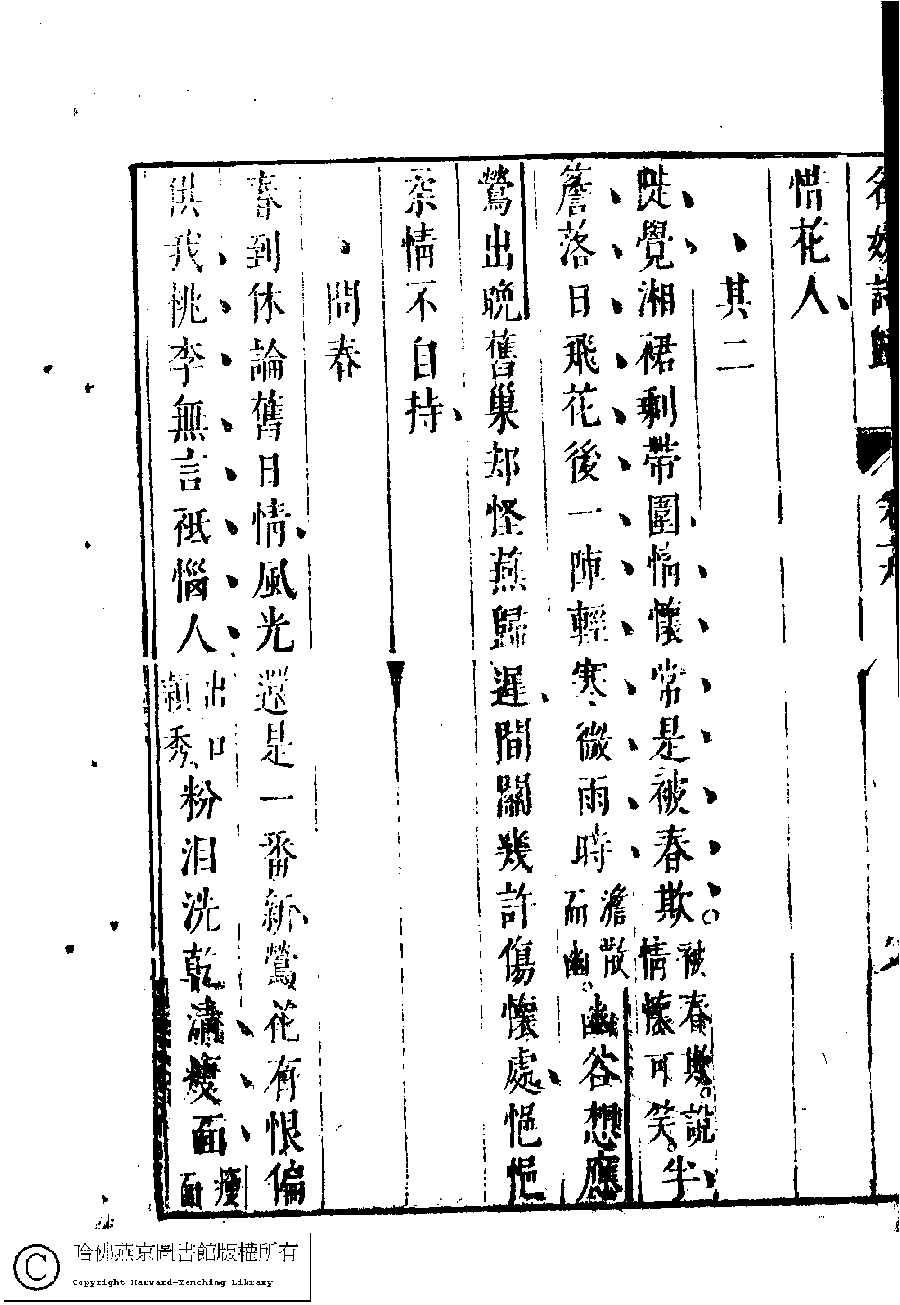 名媛詩歸
惜花人
其二
陡覺湘裙剩帶圍情懷常是被春欺被春欺說情懷可笑半
簷落日飛花後一陣輕寒微雨時澹散而幽幽谷想應
鶯出晚舊巢却怪燕歸遲間關幾許傷懷處悒悒
柔情不自持
問春
春到休論舊日情風光還是一番新鶯花有恨偏
供我桃李無言祇惱人出口穎秀粉泪洗乾清瘦面瘦面
哈佛燕京圖書館版權所有
Copyright Harvard-Yenching Library